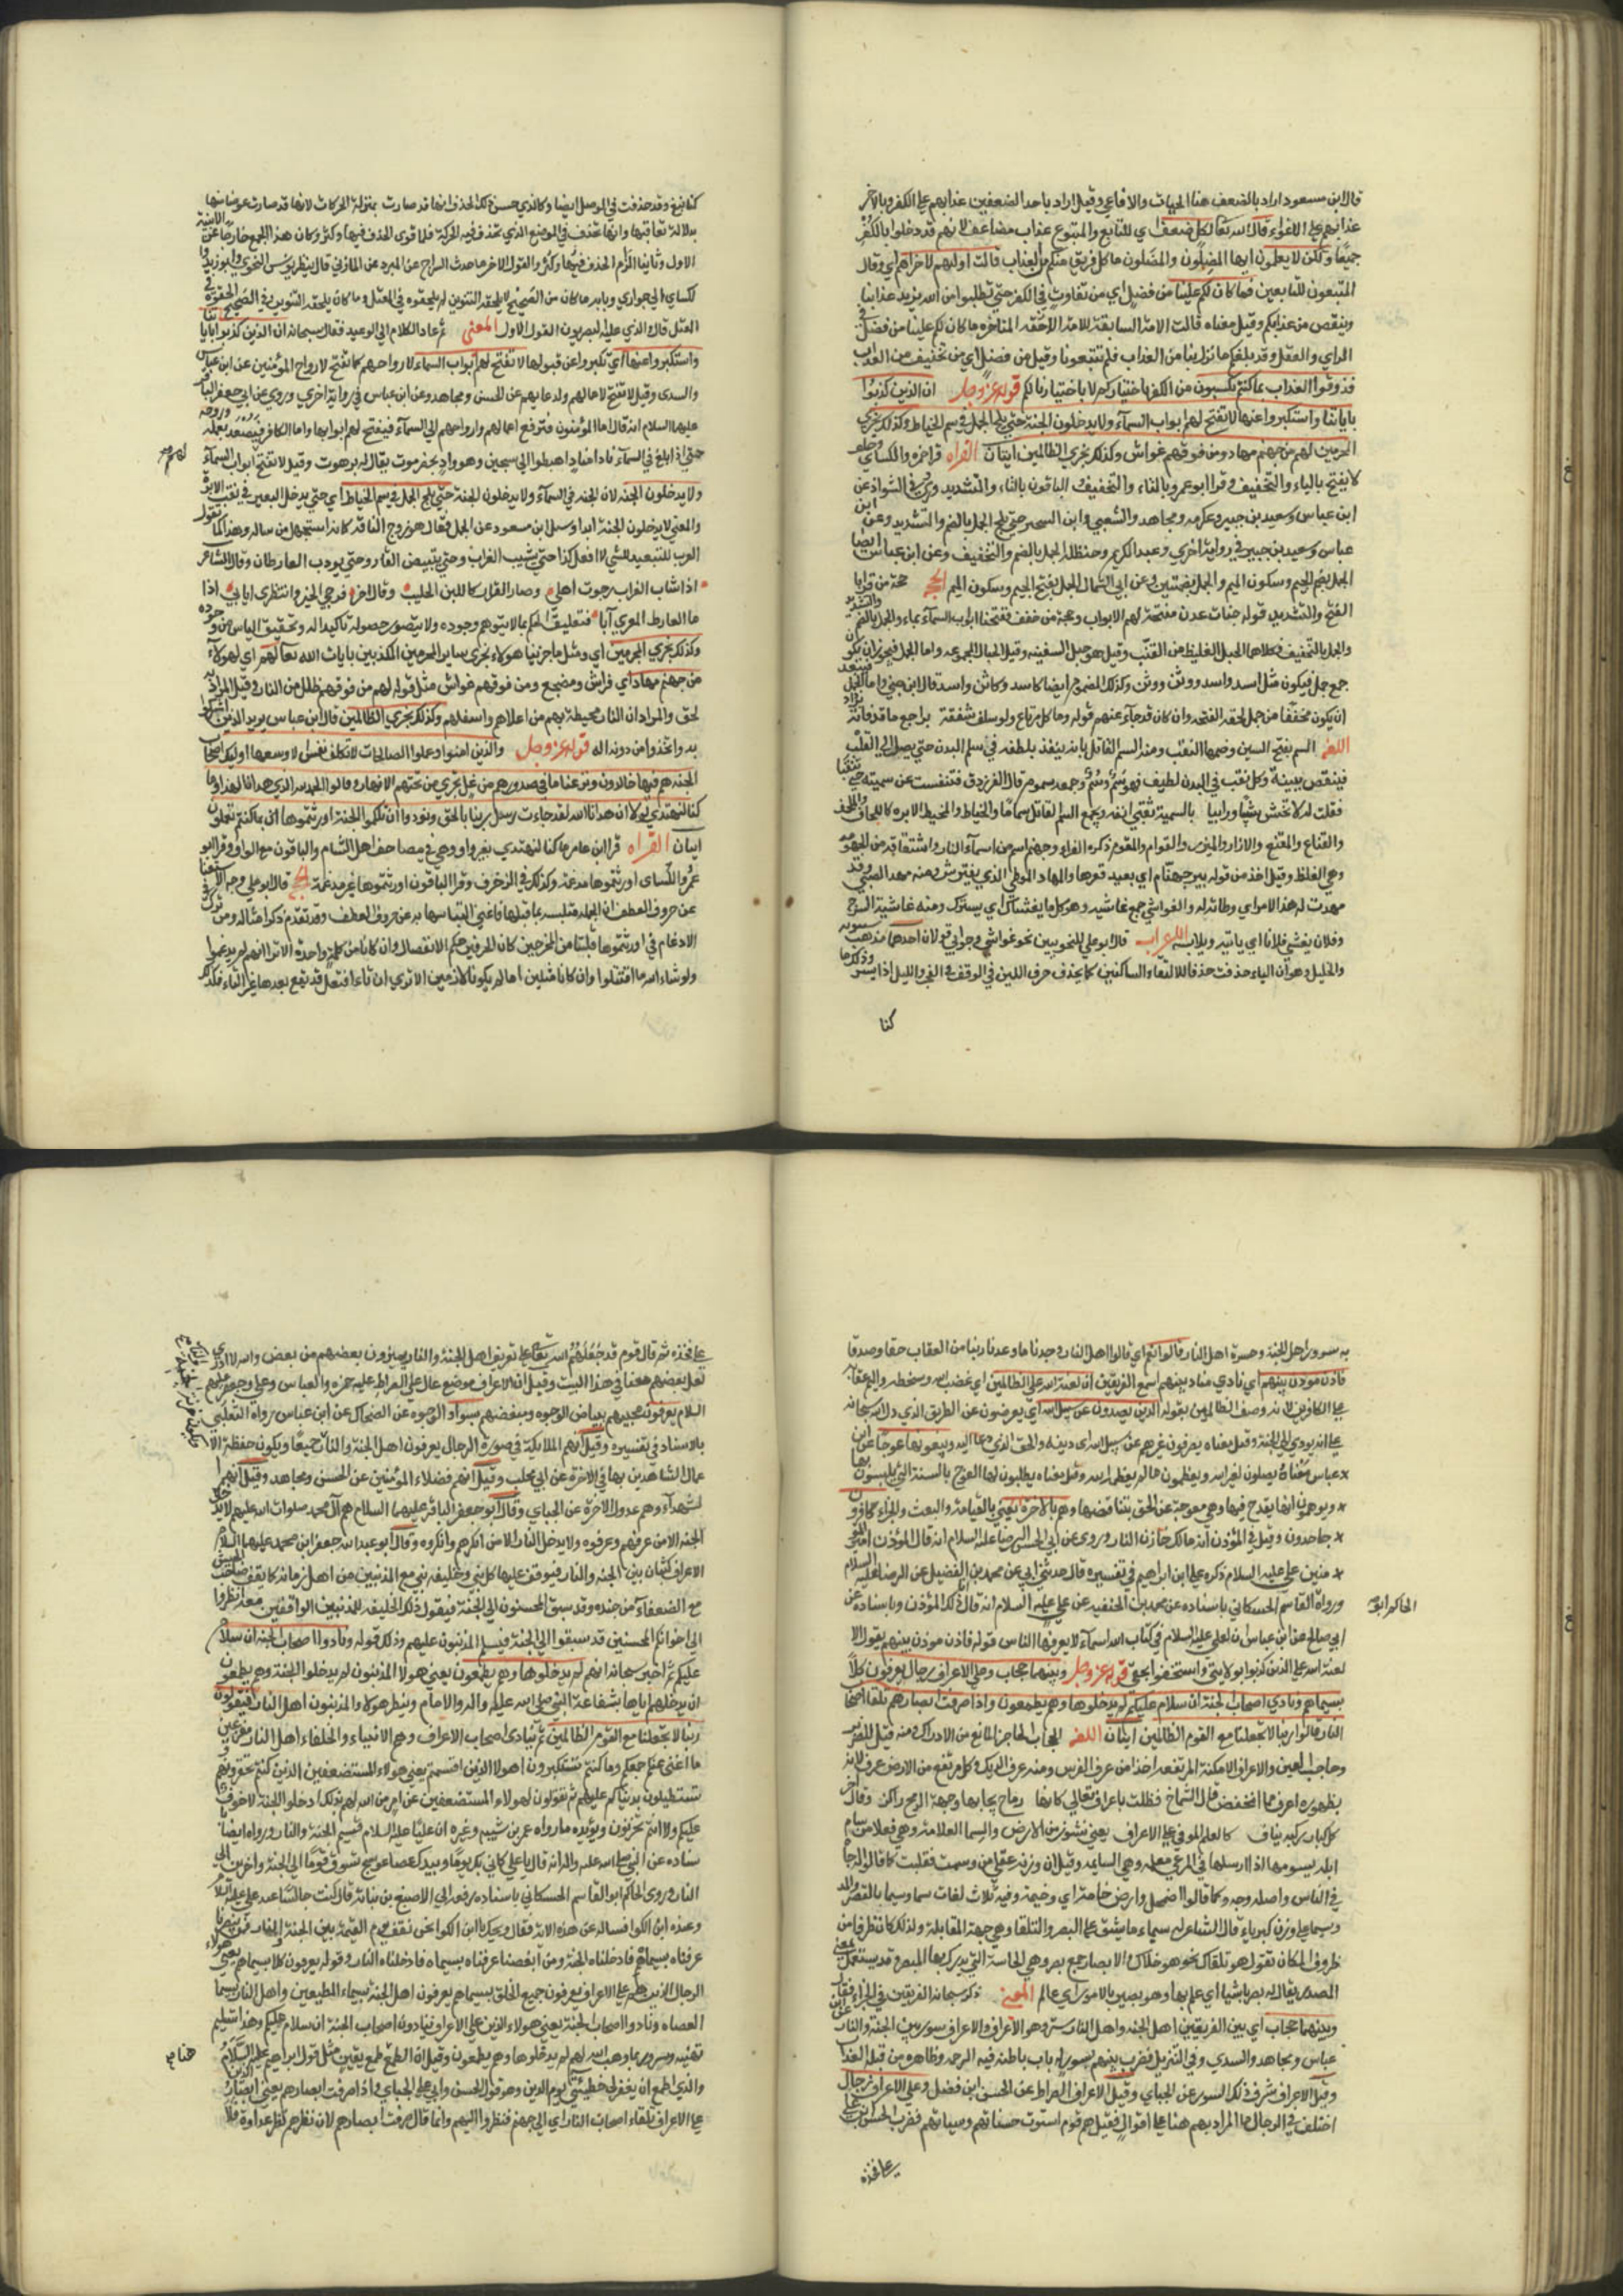 قال ابن مسعود اراد بالضعف هنا الحيات والافاعي وقيل اراد باحد الضعفين عذابهم على الكفر وبالاخر
عذابهم على الاغواء قال الله تعالى لكل ضعف اي للتابع والمتبوع عذاب مضاعف لانهم قد دخلوا بالكفر
جميعا ولكن لا يعلمون ايها المضلون والمضلون ما كل فريق منكم من العذاب قالت اوليهم لاخراهم اي وقال
المتبعون للتابعين فما كان لكم علينا من فضل اي من تفاوت في الكفر حتى تطلبوا من الله يزيد عذابنا
وينقص من عذابكم وقيل معناه قالت الامة السابقة للامة اللاحقة المتاخره ما كان لكم علينا من فضل في
الراي والعقل وقد بلغكم ما نزل بنا من العذاب فلم تتبعونا وقيل من فضل اي من تخفيف من العذاب
فذوقوا العذاب بما كنتم تكسبون من الكفر باختياركم لا باختيارنا لكم قوله عز وجل ان الذين كذبوا
باياتنا واستكبروا عنها لا تفتح لهم ابواب السماء ولا يدخلون الجنة حتى يلج الجمل في سم الخياط وكذلك نجزي
المجرمين لهم من جهنم مهاد ومن فوقهم غواش وكذلك نجزي الظالمين ايتان القراه قرا حمزه والكسائي وخلف
لا يفتح بالياء والتخفيف وقرا ابو عمرو بالتاء والتخفيف الباقون بالتاء والتشديد وروي في الشواذ عن
ابن عباس وسعيد بن جبير وعكرمه ومجاهد والشعبي وابن السخير حتى يلج الجمل بالضم والتشديد وعن ابن
عباس وسعيد بن جبير في رواية اخري وعبد الكريم وحنظلة الجمل بالضم والتخفيف وعن ابن عباس ايضا
الجمل بضم الجيم وسكون الميم والجمل بضمتين وعن ابي السمال الجمل بفتح الجيم وسكون الميم الحجة حجة من قرا
الفتح والتشديد قوله جنات عدن مفتحة لهم الابواب وحجة من خفف ففتحنا ابواب السماء بماء والجمل بالضم والتشديد
والجمل بالتخفيف فكلاهما الحبل الغليظ من القنب وقيل هو حبل السفينه وقيل الحبال المجموعه واما الجمل فيجوز ان يكون
جمع جمل فيكون مثل اسد واسد ووثن ووثن وكذلك المضموم ايضا كاسد
ان يكون مخففا من جمل لخفة الفتحه وان كان قد جاء عنهم قوله وما كل مبتاع ولو سلف شفقة براجع ما قد فاته
اللغه السم بفتح السين وضمها الثقب ومنه السم القاتل لانه ينفذ بلطفه في مسام البدن حتى يصل الى القلب
فينقص بنيته وكل ثقب في البدن لطيف فهو سم وسم وجمعه سموم قال الفرزدق فتنفست عن سميه حتى تنفسا
فقلت له لا تخش شيا ورائيا بالسميه ثقبي انفه ويجمع السم القاتل سماما والخياط والمخيط الابره كاللحاف والملحف
والقناع والمقنع والازار والميزر والقوام والمقوم ذكره الفراء وجهنم اسم من اسماء النار واشتقاقه من الجهومه
وهي الغلظ وقيل اخذ من قوله بير جهنام اي بعيد قعرها والمهاد الوطي الذي يفترش ومنه مهد الصبي وقد
مهدت له هذا الامر اي وطاته له والغواشي جمع غاشيه وهو كل ما يغشاك اي يسترك ومنه غاشية السرج
وفلان يغشى فلانا اي ياتيه ويلابسه الاعراب قال ابو علي للنحويين نحو غواشي وجوابي قولان احدهما مذهب سيبويه
والخليل وهو ان الياء حذفت حذفا لا لالتقاء الساكنين كما يحذف حرف اللين في الوقف في الفجر والليل اذا يسر وذلك ما
كنا
كنا نبغ وقد حذفت في الوصل ايضا وكان الذي حسن ذلك الحذف انها قد صارت بمنزلة الحركات لانها قد صارت عوضا منها
بدلالة تعاقبها وانها تحذف في الموضع الذي تحذف فيه الحركة فلما قوى الحذف فيها وكثر وكان هذا الجمع خارجا عن الابنية
الاول وثانيا الزام الحذف فيها وكثر والقول الاخر ما حدث السراج عن المبرد عن المازني قال ينظر يونس النحوي وابو زيد و
لكسائي الى جواري وبابه ما كان من الصحيح لا يلحقه التنوين لم يلحقوه في المعتل وما كان يلحقه التنوين في الصحيح الحقوه في
المعتل قال والذي عليه البصريون القول الاول المعنى ثم عاد الكلام الى الوعيد فقال سبحانه ان الذين كذبوا باياتنا
واستكبروا عنها اي تكبروا عن قبولها لا تفتح لهم ابواب السماء لارواحهم كما تفتح لارواح المؤمنين عن ابن عباس
والسدى وقيل لا تفتح لاعمالهم ولدعايهم عن الحسن ومجاهد وعن ابن عباس في رواية اخري وروي عن ابي جعفر الباقر
عليهما السلام انه قال اما المؤمنون فترفع اعمالهم وارواحهم الى السماء فيفتح لهم ابوابها واما الكافر فيصعد بعمله وروحه
حتى اذا بلغ في السماء نادا مناد اهبطوا الى سجين وهو واد بحضرموت يقال له برهوت وقيل لا تفتح ابواب السماء لهم
ولا يدخلون الجنه لان الجنه في السماء ولا يدخلون الجنة حتى يلج الجمل في سم الخياط اي حتى يدخل البعير في ثقب الابره
والمعنى لا يدخلون الجنة ابدا وسئل ابن مسعود عن الجمل فقال هو زوج الناقه كانه استجهل من ساله وهذا كما تقول
العرب للتبعيد للشي لا افعل كذا حتى يشيب الغراب وحتى يبيض القار وحتى يووب القارظان وقال الشاعر
اذا شاب الغراب رجوت اهلي وصار القار كاللبن الحليب وقال اخر فرجي الخير وانتظري ايابي اذا
ما القارظ العنزي آبا فتعليق الحكم بما لا يتوهم وجوده ولا يتصور حصوله تاكيد له وتحقيق الياس من وجوده
وكذلك نجزي المجرمين اي ومثل ما جزينا هولاء نجزي ساير المجرمين المكذبين بايات الله تعالى لهم اي لهولاء
من جهنم مهاد اي فراش ومضجع ومن فوقهم غواش مثل قوله لهم من فوقهم ظلل من النار وقيل المراد به
لحف والمراد ان النار محيطة بهم من اعلاهم واسفلهم وكذلك نجزي الظالمين قال ابن عباس يريد الذين اشركوا
به واتخذوا من دونه اله قوله عز وجل والذين امنوا وعملوا الصالحات لا نكلف نفسا الا وسعها اوليك اصحاب
الجنة هم فيها خالدون ونزعنا ما في صدورهم من غل تجري من تحتهم الانهار وقالوا الحمد لله الذي هدانا لهذا وما
كنا لنهتدي لولا ان هدانا الله لقد جاءت رسل ربنا بالحق ونودوا ان تلكم الجنة اورثتموها بما كنتم تعملون
ايتان القراه قرا ابن عامر ما كنا لنهتدي بغير واو وهي في مصاحف اهل الشام والباقون مع الواو وقرا ابو
عمرو والكسائى اورثتموها مدغمة وكذلك في الزخرف وقرا الباقون اورثتموها غير مدغمة الحجة قال ابو علي وجه الاستغنا
عن حروف العطف ان الجمله ملتبسه بما قبلها فاغنى التباسها به عن حروف العطف وقد تقدم ذكر امثاله ومن ترك
الادغام في اورثتموها فلتباين المخرجين كان الحرفين حكم الانفصال وان كانا من كلمة واحدة الا ترا انهم لم يدغموا
ولو شاء الله ما اقتتلوا وان كانا مثلين لما لم يكونا لازمين الا ترى ان تاء افتعل قد يقع بعدها غير التاء فكذلك
به سرور اهل الجنه وحسرة اهل النار قالوا نعم اي قالوا اهل النار وجدنا ما وعدنا ربنا من العقاب حقا وصدقا
فاذن موذن بينهم اي نادي مناد بينهم اسمع الفريقين ان لعنة الله على الظالمين اي غضب الله وسخطه واليم عقابه
على الكافرين لانه وصف الظالمين بقوله الذين يصدون عن سبيل الله اي يعرضون عن الطريق الذي دل الله سبحانه
على انه يودي الى الجنة وقيل معناه يصرفون غيرهم عن سبيل الله اى دينه والحق الذي دعا اليه ويبغونها عوجا عن ابن
عباس معناه يصلون لغير الله ويعظمون ما لم يعظمه الله وقيل معناه يطلبون لها العوج بالشبه التي يلبسون بها
ويوهمون انها يقدح فيها وهي معوجة عن الحق بتناقضها وهم بالاخرة يعني بالقيامة والبعث والجزاء كافرون
جاحدون وقيل في المؤذن انه مالك خازن النار وروي عن ابي الحسن الرضا عليه السلام انه قال المؤذن امير المؤ
منين علي عليه السلام ذكره علي ابن ابراهيم في تفسيره قال حدثني ابي عن محمد بن الفضيل عن الرضا عليه السلام
ورواه ابو القاسم الحسكاني باسناده عن محمد بن الحنفيه عن علي عليه السلام انه قال انا ذلك المؤذن وباسناده عن
الحاكم ابو
ابي صالح عن ابن عباس ان لعلي عليه السلام في كتاب الله اسماء لا يعرفها الناس قوله فاذن موذن بينهم يقول الا
لعنة الله على الذين كذبوا بولايتي واستخفوا بحقي قوله عز وجل وبينهما حجاب وعلى الاعراف رجال يعرفون كلا
بسيماهم ونادي اصحاب الجنة ان سلام عليكم لم يدخلوها وهم يطمعون واذا صرفت ابصارهم تلقاء اصحاب
النار قالوا ربنا لا تجعلنا مع القوم الظالمين ايتان اللغه الحجاب الحاجز المانع من الادراك ومنه قيل للضرير
وحاجب العين والاعراف الامكنة المرتفعه اخذ من عرف الفرس ومنه عرف الديك وكل مرتفع من الارض عرف لانه
بظهوره اعرف مما انخفض قال الشماخ فظلت باعراف تعالى كانها رماح نحاها وجهة الريح راكز وقال اخر
كل كناز لحمه نياف كالعلم الموفي على الاعراف يعني نشوز من الارض والسيما العلامة وهي فعلا من سام
ابله يسومها اذا ارسلها في المرعى معلمه وهي السايمه وقيل ان وزنه عفلى من وسمت فقلبت كما قالوا له جاه
في الناس واصله وجه وكما قالوا اضمحل وارض خامة اي وخيمة وفيه ثلاث لغات سيما وسيما بالقصر والمد
وسيمياء على وزن كبرياء قال الشاعر له سيمياء ما تشق على البصر والتلقاء وهي جهة المقابلة ولذلك كان ظرفا من
ظروف المكان تقول هو تلقاك نحو هو حذاك والابصار جمع بصر وهي الحاسة التي يدرك بها المبصر وقد يستعمل بمعنى
المصدر يقال له بصر بالاشيا اي علم بها وهو بصير بالامور اي عالم المعنى ذكر سبحانه الفريقين في الجزاء فقال
وبينهما حجاب اي بين الفريقين اهل الجنه واهل النار ستر وهو الاعراف والاعراف سور بين الجنة والنار عن ابن
عباس ومجاهد والسدي وفي التنزيل فضرب بينهم بسور له باب باطنه فيه الرحمه وظاهره من قبله العذاب
وقيل الاعراف شرف ذلك السور عن الجبائي وقيل الاعراف الصراط عن الحسن ابن فضل وعلى الاعراف رجال
اختلف في الرجال ما المراد بهم هنا على اقوال فقيل هم قوم استوت حسناتهم وسياتهم فضرب الحسن يده على
على فخذه
على فخذه ثم قال قوم قد جعلهم الله تعالى على تعريف اهل الجنة والنار يميزون بعضهم من بعض والله لا ادري
لعل بعضهم معنا في هذا البيت وقيل ان الاعراف موضع عال على الصراط عليه حمزه والعباس وعلي وجعفر عليهم
السلام يعرفون محبيهم ببياض الوجوه ومبغضيهم بسواد الوجوه عن الضحاك عن ابن عباس رواه الثعلبي
بالاسناد في تفسيره وقيل انهم الملايكة في صورة الرجال يعرفون اهل الجنة والنار جميعا ويكون حفظة الا
عمال الشاهدين بها في الاخرة عن ابي مجلب وقيل انهم فضلاء المؤمنين عن الحسن ومجاهد وقيل انهم ا
لشهداء وهم عدول الاخرة عن الجبائي وقال ابو جعفر الباقر عليهما السلام هم آل محمد صلوات الله عليهم لا يدخل
الجنه الا من عرفهم وعرفوه ولا يدخل النار الا من انكرهم وانكروه وقال ابو عبد الله جعفر ابن محمد عليهما السلام
الاعراف كثبان بين الجنه والنار فيوقف عليها كل نبي وخليفه نبي مع المذنبين من اهل زمانه كما يقف صاحب الجيش
مع الضعفاء من جنده وقد سبق المحسنون الى الجنة فيقول ذلك الخليفه للمذنبين الواقفين معه انظروا
الى اخوانكم المحسنين قد سبقوا الى الجنة فيسلم المذنبون عليهم وذلك قوله ونادوا اصحاب الجنة ان سلام
عليكم ثم اخبر سبحانه انهم لم يدخلوها وهم يطمعون يعني هولا المذنبون لم يدخلوا الجنة وهم يطمعون
ان يدخلهم اياها بشفاعة النبي صلى الله عليه وآله والامام وينظر هولاء المذنبون اهل النار فيقولون
ربنا لا تجعلنا مع القوم الظالمين ثم ينادى اصحاب الاعراف وهم الانبياء والخلفاء اهل النار مقرعين
ما اغنى عنكم جمعكم وما كنتم تستكبرون اهولا الذين اقسمتم يعني هولاء المستضعفين الذين كنتم تحقرونهم و
تستطيلون بدنياكم عليهم ثم يقولون لهولاء المستضعفين عن امر من الله لهم بذلك ادخلوا الجنة لا خوف
عليكم ولا انتم تحزنون ويؤيده ما رواه عمر بن شيبه وغيره ان عليا عليه السلام قسيم الجنة والنار ورواه ايضا با
سناده عن النبي صلى الله عليه وآله انه قال يا علي كاني بك يوم القيامه وبيدك عصا عوسج تسوق قوما الى الجنة واخرين الى
النار وروى الحاكم ابو القاسم الحسكاني باسناده رفعه الى الاصبغ بن نباته قال كنت جالسا عند علي عليه السلام
وعنده ابن الكوا فساله عن هذه الايه فقال ويحك يا ابن الكوا نحن نقف يوم القيمة بين الجنة والنار فمن نصرنا
عرفناه بسيماه فادخلناه الجنة ومن ابغضنا عرفناه بسيماه فادخلناه النار وقوله يعرفون كلا بسيماهم يعني هولاء
الرجال الذين هم على الاعراف يعرفون جميع الخلق بسيماهم يعرفون اهل الجنة بسيماء المطيعين واهل النار بسيما
العصاه ونادوا اصحاب الجنة يعني هولاء الذين على الاعراف ينادون اصحاب الجنة ان سلام عليكم وهذا تسليم
تهنيه وسرور بما وهب الله لهم لم يدخلوها وهم يطمعون وقيل ان الطمع طمع يقين مثل قول ابراهيم عليه السلام
هنا
والذي اطمع ان يغفر لي خطيئتي يوم الدين وهو قول الحسن وابي علي الجبائي واذا صرفت ابصارهم يعني ابصار الذين
على الاعراف تلقاء اصحاب النار اي الى جهنم فنظروا اليهم وانما قال صرفت ابصارهم لان نظرهم نظر عداوة فلا